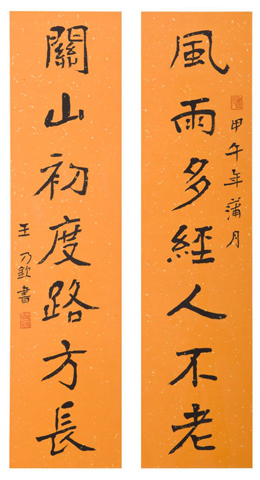 風雨多經人不老
甲午年蒲月
關山初度路方長
王乃欽書